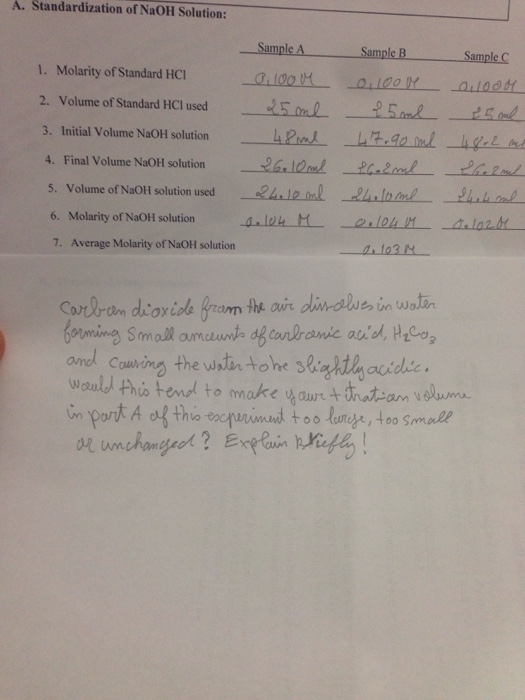 A. Standardization of NaOH Solution:
Sample A Sample B Sample C
1. Molarity of Standard HCl 0.100 M 0.100 M 0.100 M
2. Volume of Standard HCl used 25 ml 25 ml 25 ml
3. Initial Volume NaOH solution 48 ml 47.90 ml 48.2 ml
4. Final Volume NaOH solution 26.10 ml 26.2 ml 26.2 ml
5. Volume of NaOH solution used 24.10 ml 24.10 ml 24.4 ml
6. Molarity of NaOH solution 0.104 M 0.104 M 0.102 M
7. Average Molarity of NaOH solution 0.103 M
Carbon dioxide from the air dissolves in water
forming small amounts of carbonic acid, H2CO3
and causing the water to be slightly acidic.
Would this tend to make your titration volume
in part A of this experiment too large, too small
or unchanged? Explain briefly!